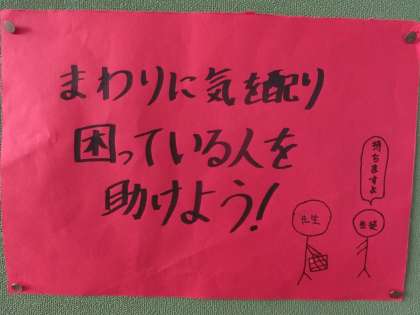 まわりに気を配り
困っている人を
助けよう!
持ちますよ
先生
生徒